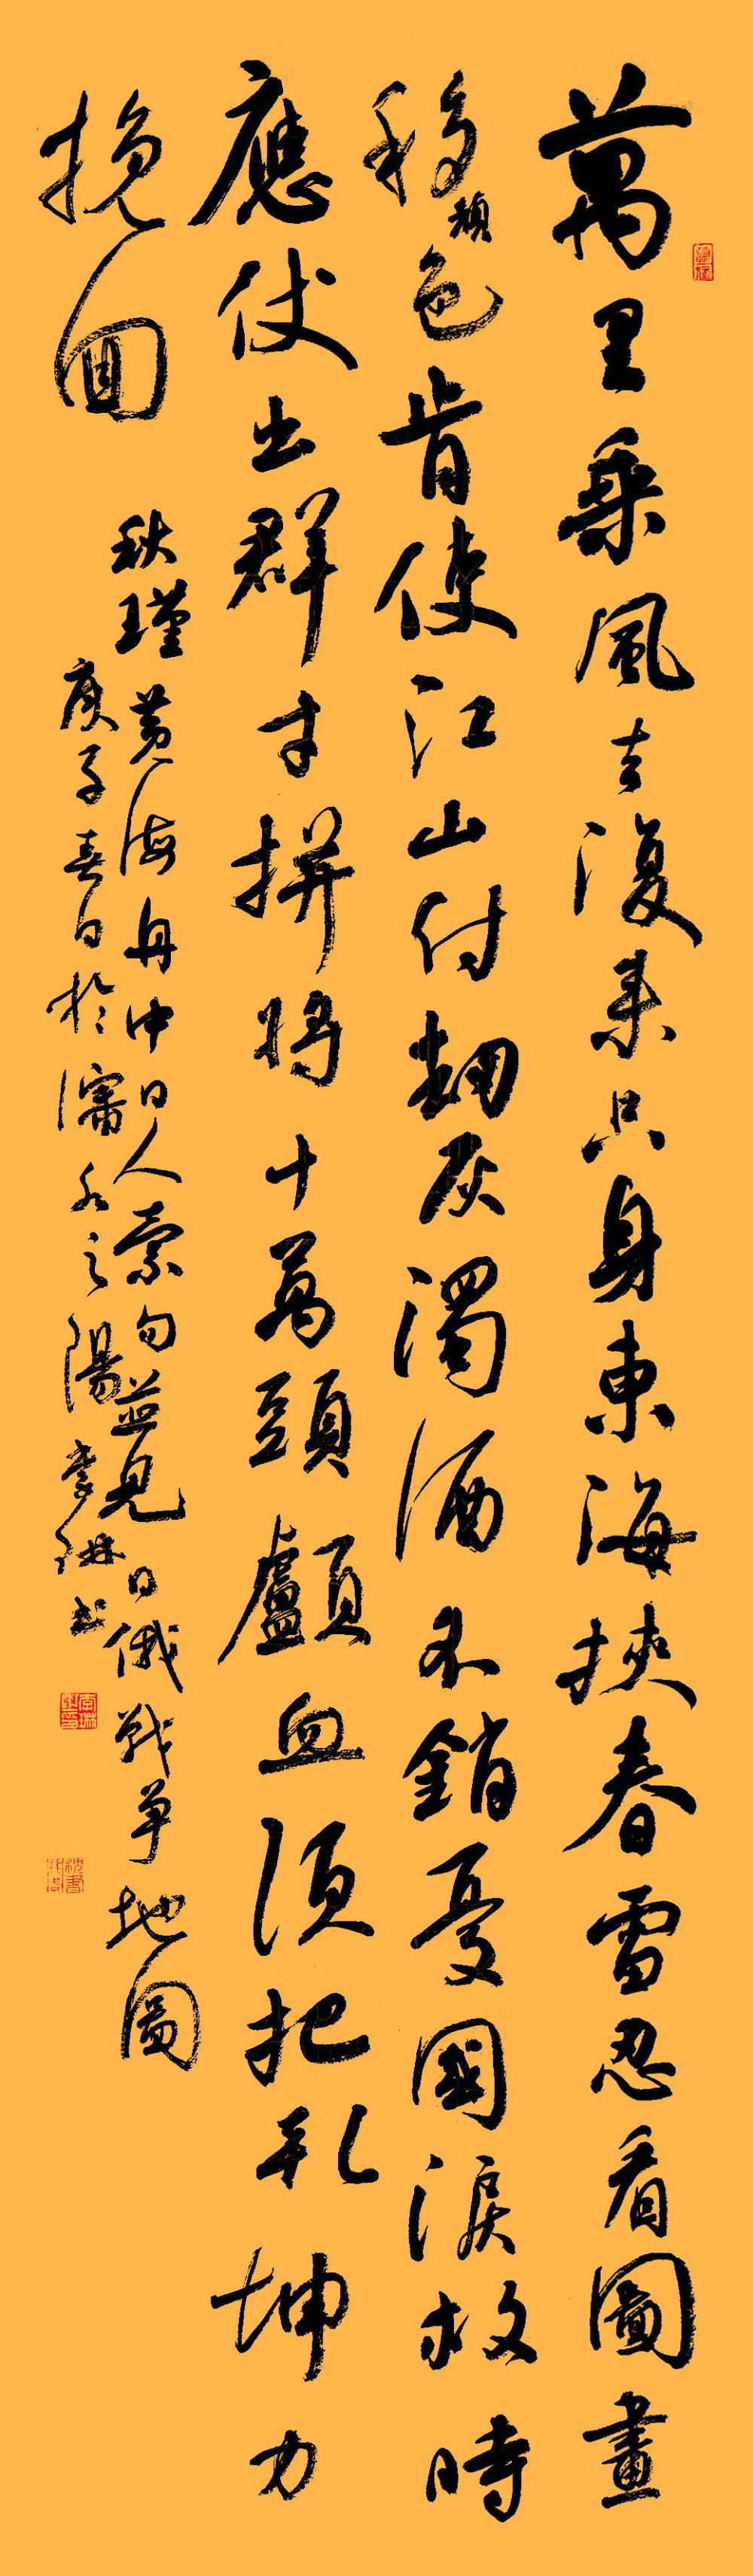 萬里乘風去復來只身東海挾春雷忍看圖畫
移顏色肯使江山付劫灰濁酒不銷憂國淚救時
應仗出群才拼將十萬頭顱血須把乾坤力
挽回
秋瑾黃海舟中日人索句並見日俄戰爭地圖
庚子春日於瀋水之陽李琳書